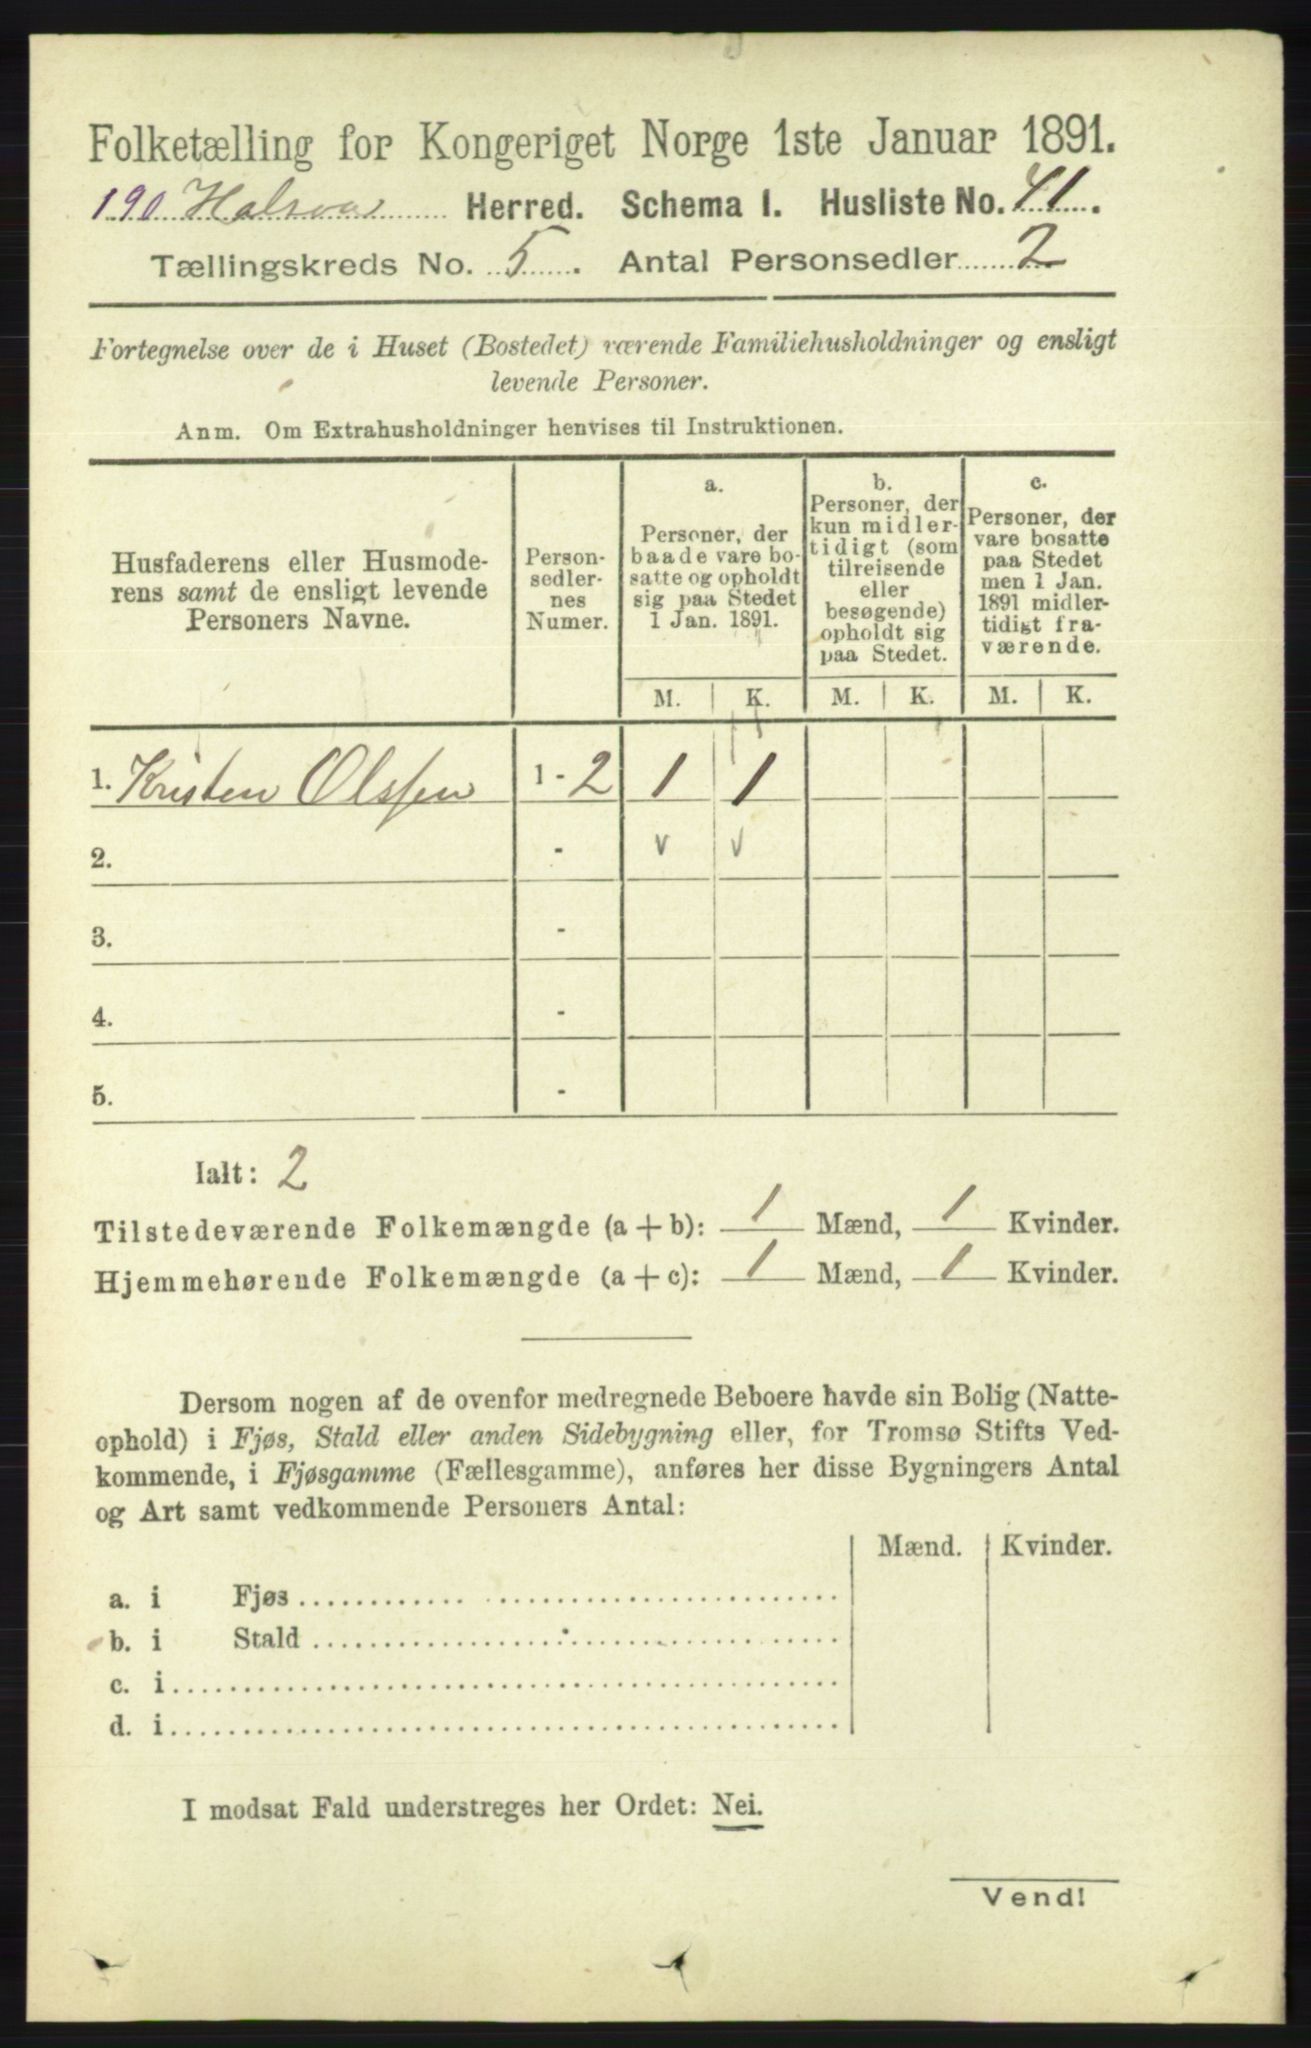 Folketælling for Kongeriget Norge 1ste Januar 1891.
190 Herred. Schema I. Husliste No. 41.
Tællingskreds No. 5. Antal Personsedler 2
Fortegnelse over de i Huset (Bostedet) værende Familiehusholdninger og ensligt
levende Personer.
Anm. Om Extrahusholdninger henvises til Instruktionen.
Husfaderens eller Husmode-
rens samt de ensligt levende
Personers Navne.
Person-
sedler-
nes
Numer.
a.
Personer, der
baade vare bo-
satte og opholdt
sig paa Stedet
1 Jan. 1891.
b.
Personer, der
kun midler-
tidigt (som
tilreisende
eller
besøgende)
opholdt sig
paa Stedet.
c.
Personer, der
vare bosatte
paa Stedet
men 1 Jan.
1891 midler-
tidigt fra-
værende.
M. K. M. K. M. K.
1. Kristen Olssen 1 - 2 1 1
2. - v v
3. -
4. -
5. -
Ialt: 2
Tilstedeværende Folkemængde (a + b): 1 Mænd, 1 Kvinder.
Hjemmehørende Folkemængde (a + c): 1 Mænd, 1 Kvinder.
Dersom nogen af de ovenfor medregnede Beboere havde sin Bolig (Natte-
ophold) i Fjøs, Stald eller anden Sidebygning eller, for Tromsø Stifts Ved-
kommende, i Fjøsgamme (Fællesgamme), anføres her disse Bygningers Antal
og Art samt vedkommende Personers Antal:
Mænd. Kvinder.
a. i Fjøs
b. i Stald
c. i
d. i
I modsat Fald understreges her Ordet: Nei.
Vend!